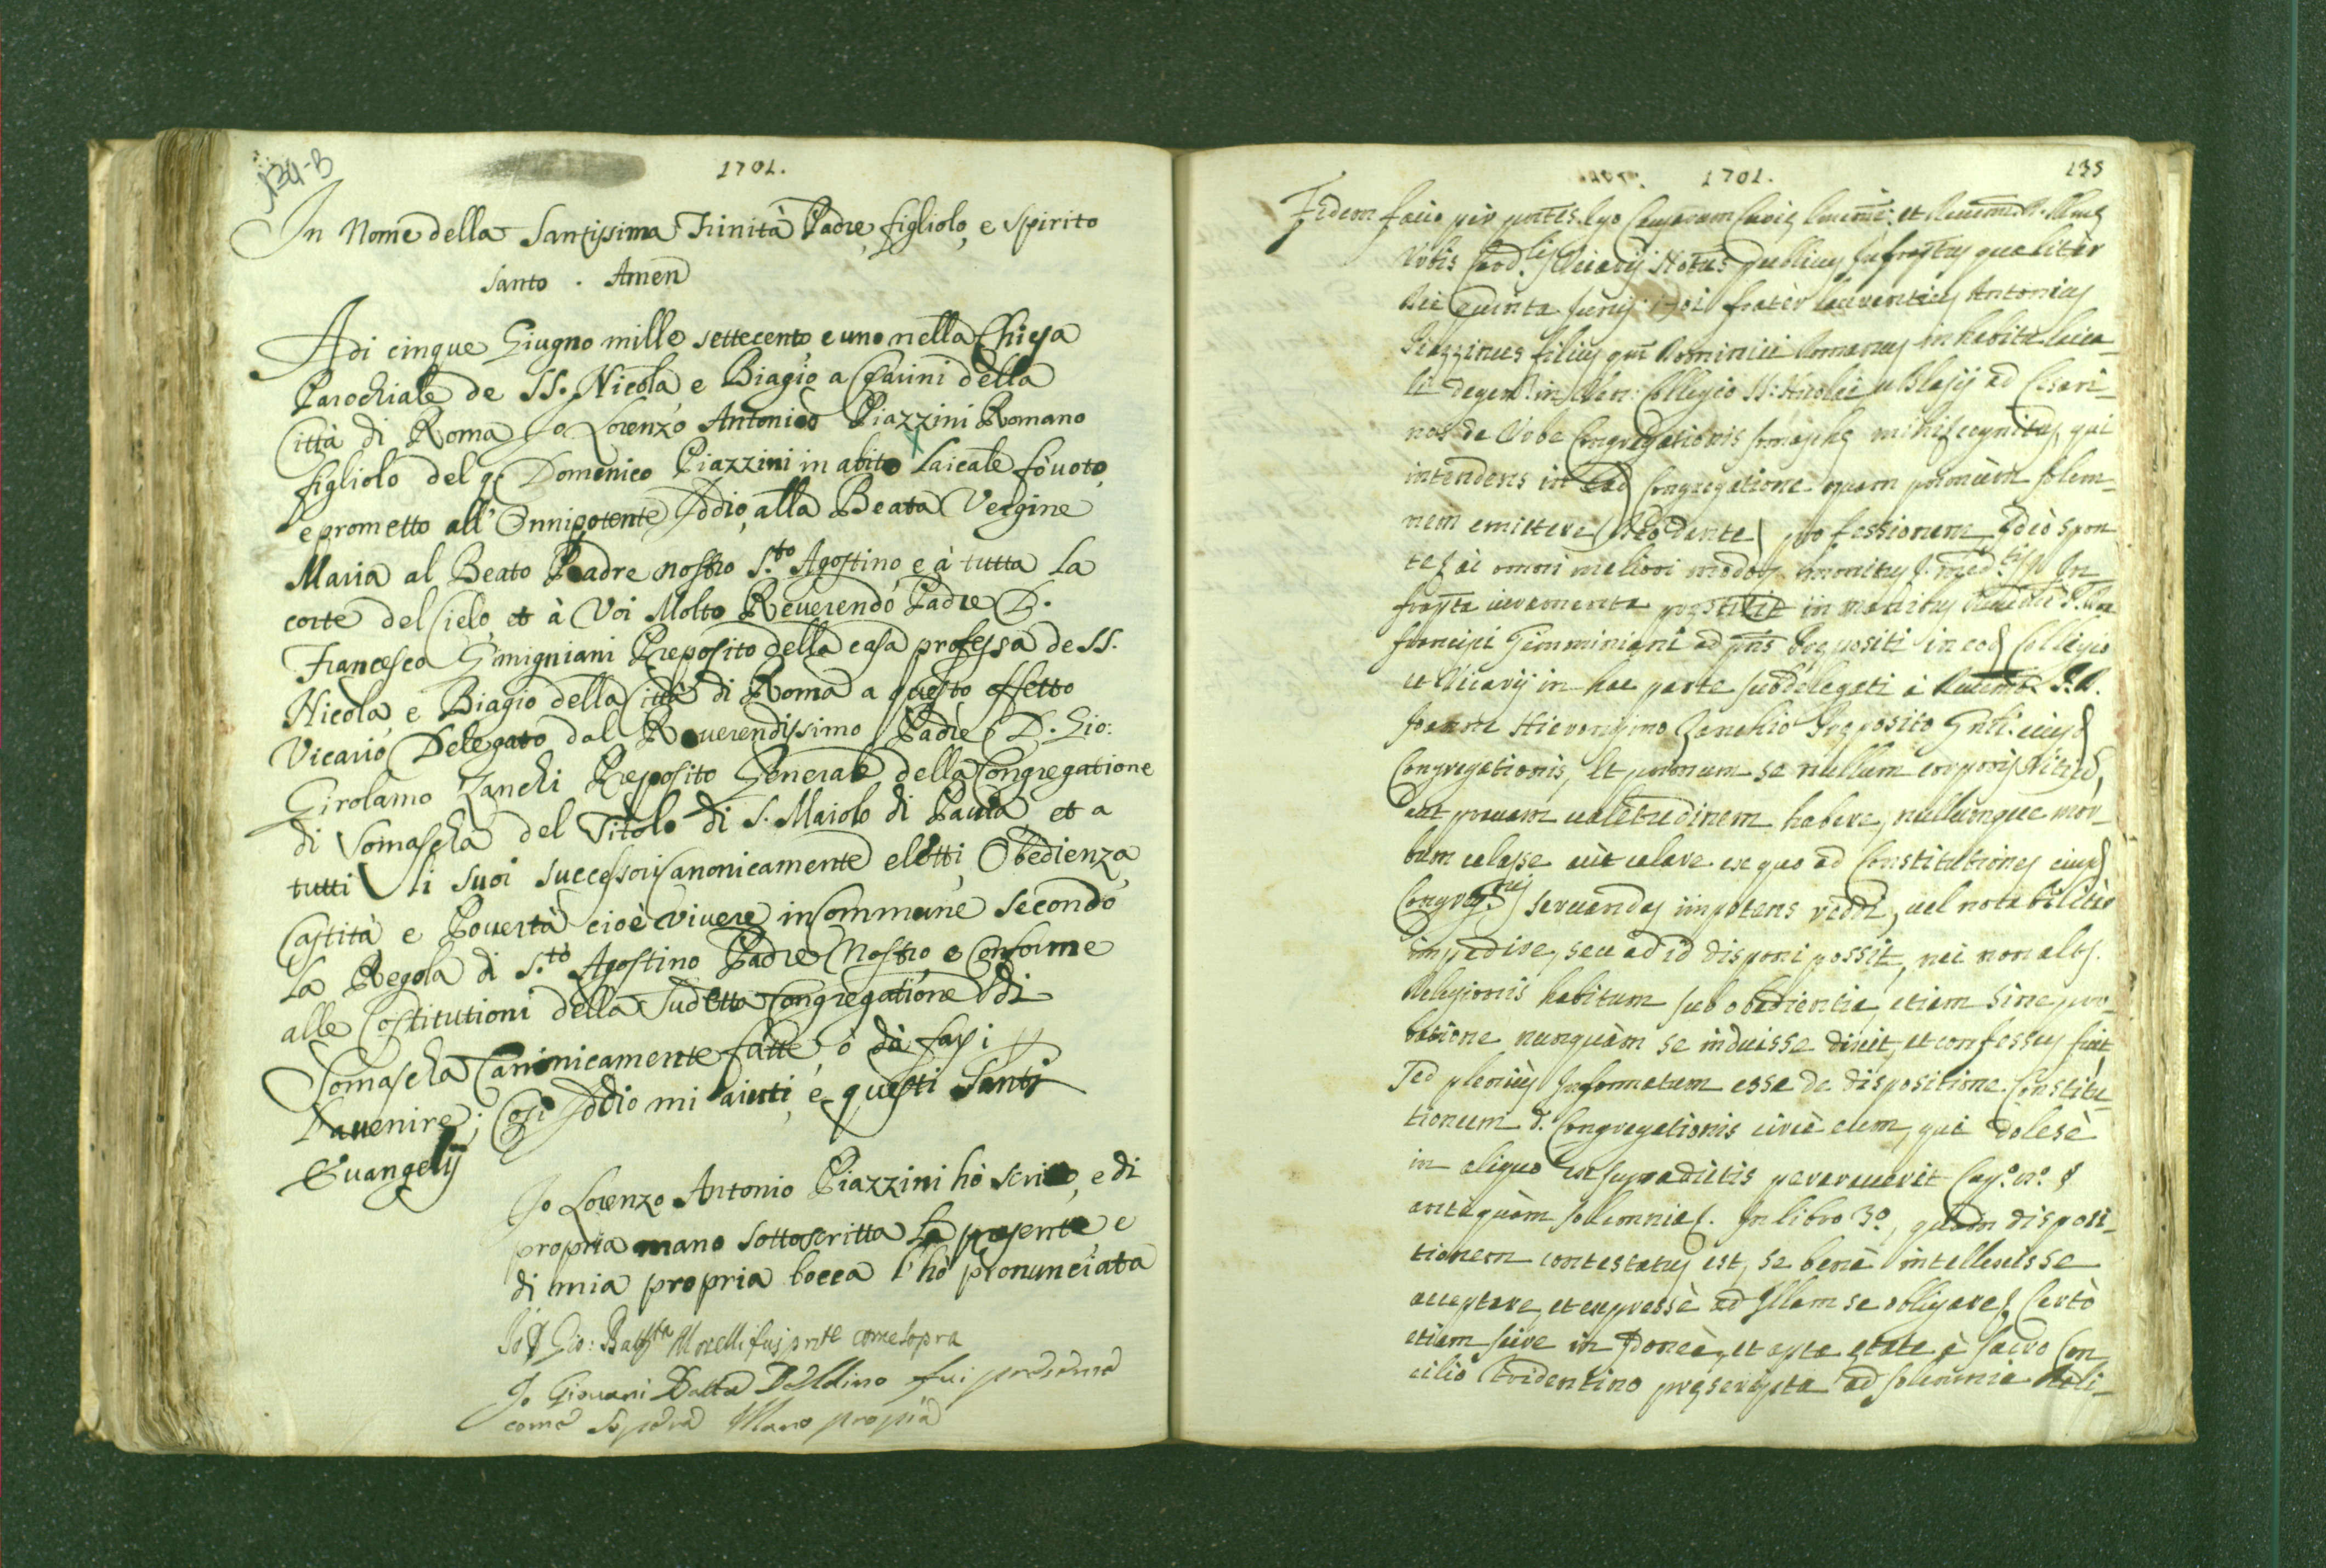 134-B
1701.
In Nome della Santissima Trinità Padre, figliolo, e Spirito
Santo . Amen
Adi cinque Giugno mille settecento e uno nella Chiesa
Parochiale de SS. Nicola, e Biagio a Cesarini della
Città di Roma Io Lorenzo Antonio Piazzini Romano
figliolo del q. Domenico Piazzini in abito Laicale fò uoto,
e prometto all'Onnipotente Iddio, alla Beata Vergine
Maria al Beato Padre nostro S.to Agostino e à tutta la
corte del Cielo, et à Voi Molto Reuerendo Padre D.
Francesco Gimigniani Preposito della casa professa de SS.
Nicola, e Biagio della Città di Roma a questo effetto
Vicario Delegato dal Reuerendissimo Padre D. Gio:
Girolamo Zanchi Preposito Generale della Congregatione
di Somascha del Titolo di S. Maiolo di Pauia et a
tutti li suoi successori Canonicamente eletti, Obedienza,
Castità e Pouertà cioè viuere in Commune secondo
la Regola di S.to Agostino Padre Nostro e Conforme
alle Costitutioni della Sudetta Congregatione di
Somascha Canonicamente fatte, ò da farsi
Lauenire; Cosi Iddio mi aiuti, e questi Santi
Euangelij
Io Lorenzo Antonio Piazzini hò scritto, e di
propria mano sottoscritta la presente, e
di mia propria bocca l'hò pronunciata
Io D Gio: Batt.ta Morelli fui pnte come sopra
Io Giouani Batta Doldino fui presente
come sopra Mano propia
1701.
135
Fidem facio per pntes. Ego Causarum Curiæ
Vrbis Card.lis Vicarij Notus publicus Infrascptus qualiter
die quinta Junij 1701 frater Laurentius Antonius
Piazzinus filius qm Dominici Romanus in habitu laica-
li degens in Ven: Collegio SS: Nicolai et Blasij ad Cesari-
nos de Vrbe Congregationis Somaschæ mihi cognitus, qui
intendens in ead Congregatione quam primùm solem-
nem emittere (Deo dante) professionem Ideò spon
te omni meliori modo
frapta iuramenta præstitit in manibus
Francisci Gemminiani ad pns Præpositi in eod Collegio
et Vicarij in hac parte subdelegati à Reuermo P.D.
Joanne Hieronymo Zanchio Præposito Gnli eiusd
Congregationis, Et primum se nullum corporis vitiũ,
aut prauam ualetudinem habere, nullumque mor-
bum celasse aut celare ex quo ad Constitutiones eiusd
Congreg.nis seruandas impotens reddi, uel notabiliter
impedire, seu ad id disponi possit, nec non alts.
Religionis habitum sub obedientia, etiam sine pro-
batione nunquàm se induisse dixit, et confessus fuit
Sed pleniùs Informatum esse de dispositione Constitu-
tionum d. Congregationis circà eum, qui dolosè
in aliquo ex supradictis perauerit Cap.o n.o 8
antequàm solemnia. In libro 3o, quam disposi-
tionem contestatus est, se benè intellexisse
acceptare, et expressè ad Illam se obligare. Certò
etiam scire in Idonea, et apta ætate à Sacro Con
cilio Tridentino præscripta ad solemnia Reli-